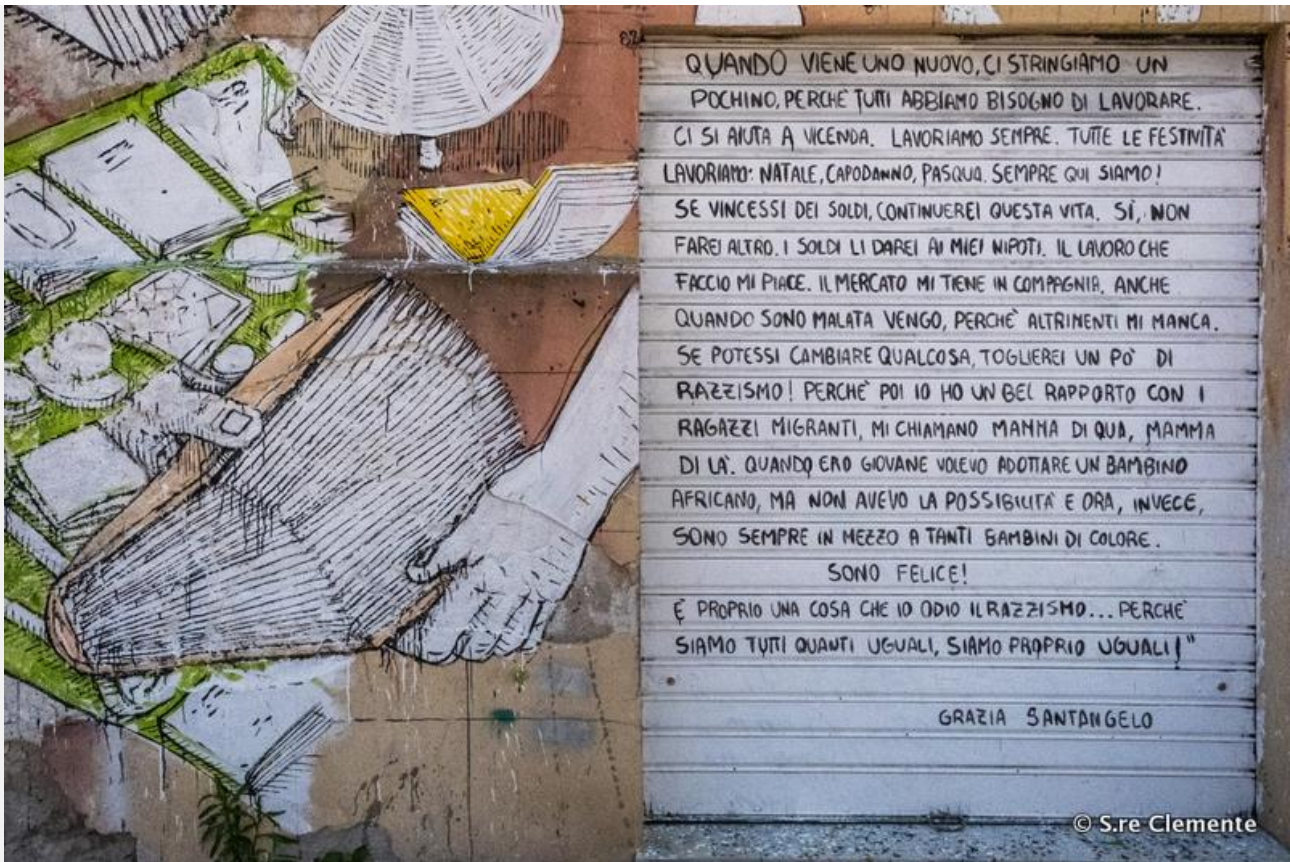 QUANDO VIENE UNO NUOVO, CI STRINGIAMO UN
POCHINO, PERCHE TUTTI ABBIAMO BISOGNO DI LAVORARE.
CI SI AIUTA A VICENDA. LAVORIAMO SEMPRE. TUTTE LE FESTIVITÀ
LAVORIAMO: NATALE, CAPODANNO, PASQUA. SEMPRE QUI SIAMO!
SE VINCESSI DEI SOLDI, CONTINUEREI QUESTA VITA. SÌ, NON
FAREI ALTRO. I SOLDI LI DAREI AI MIEI NIPOTI. IL LAVORO CHE
FACCIO MI PIACE. IL MERCATO MI TIENE IN COMPAGNIA. ANCHE
QUANDO SONO MALATA VENGO, PERCHÈ ALTRIMENTI MI MANCA.
SE POTESSI CAMBIARE QUALCOSA, TOGLIEREI UN PO' DI
RAZZISMO! PERCHÈ POI IO HO UN BEL RAPPORTO CON I
RAGAZZI MIGRANTI, MI CHIAMANO MAMMA DI QUA, MAMMA
DI LÀ. QUANDO ERO GIOVANE VOLEVO ADOTTARE UN BAMBINO
AFRICANO, MA NON AVEVO LA POSSIBILITÀ E ORA, INVECE,
SONO SEMPRE IN MEZZO A TANTI BAMBINI DI COLORE.
SONO FELICE!
È PROPRIO UNA COSA CHE IO ODIO IL RAZZISMO... PERCHÈ
SIAMO TUTTI QUANTI UGUALI, SIAMO PROPRIO UGUALI!"
GRAZIA SANTANGELO
© S.re Clemente